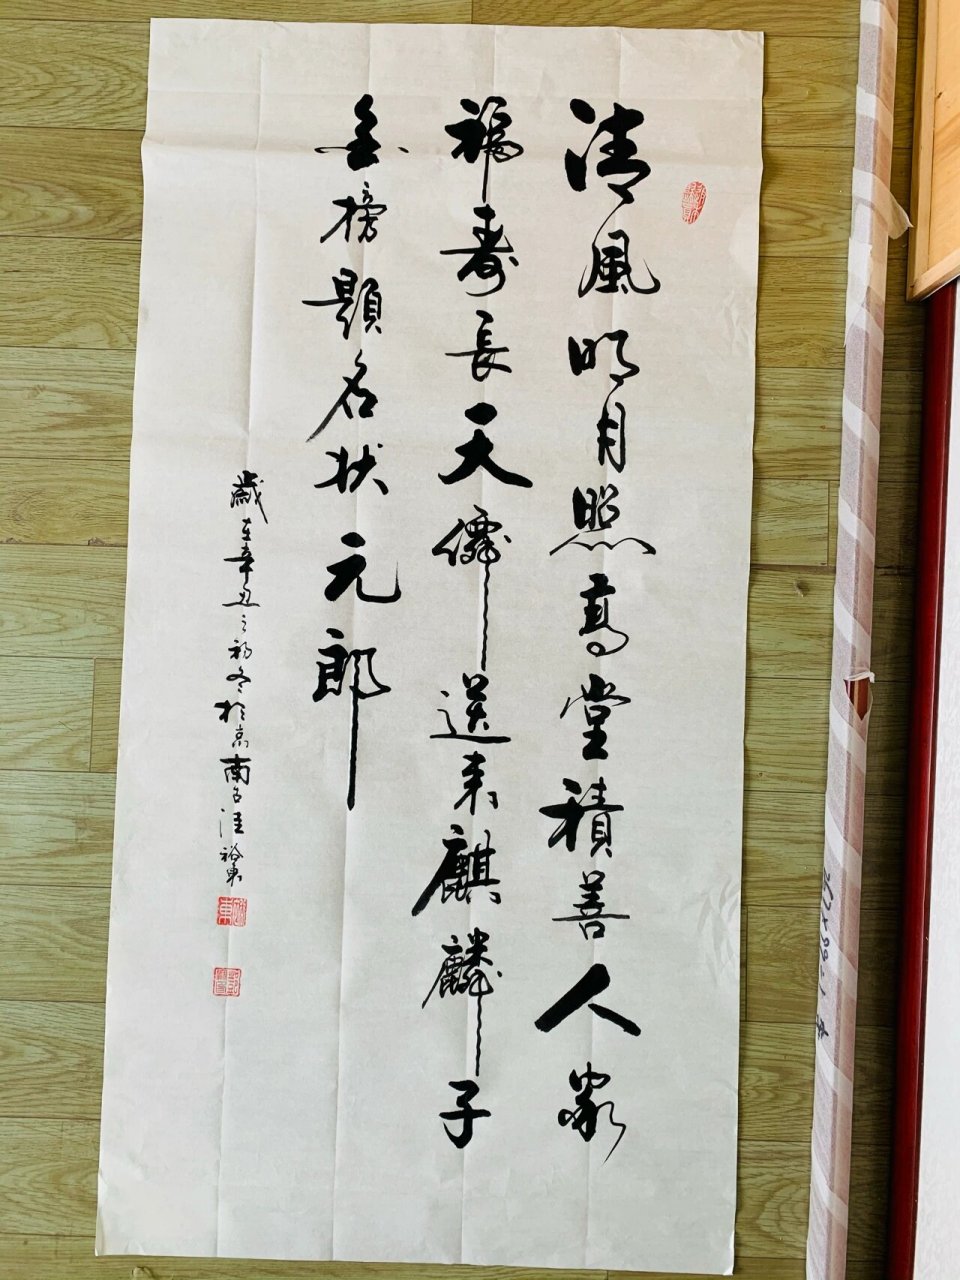 清風明月照高堂積善人家
福壽長天僊送来麒麟子
金榜題名状元郎
歲在辛丑之初冬於高南台汪裕東